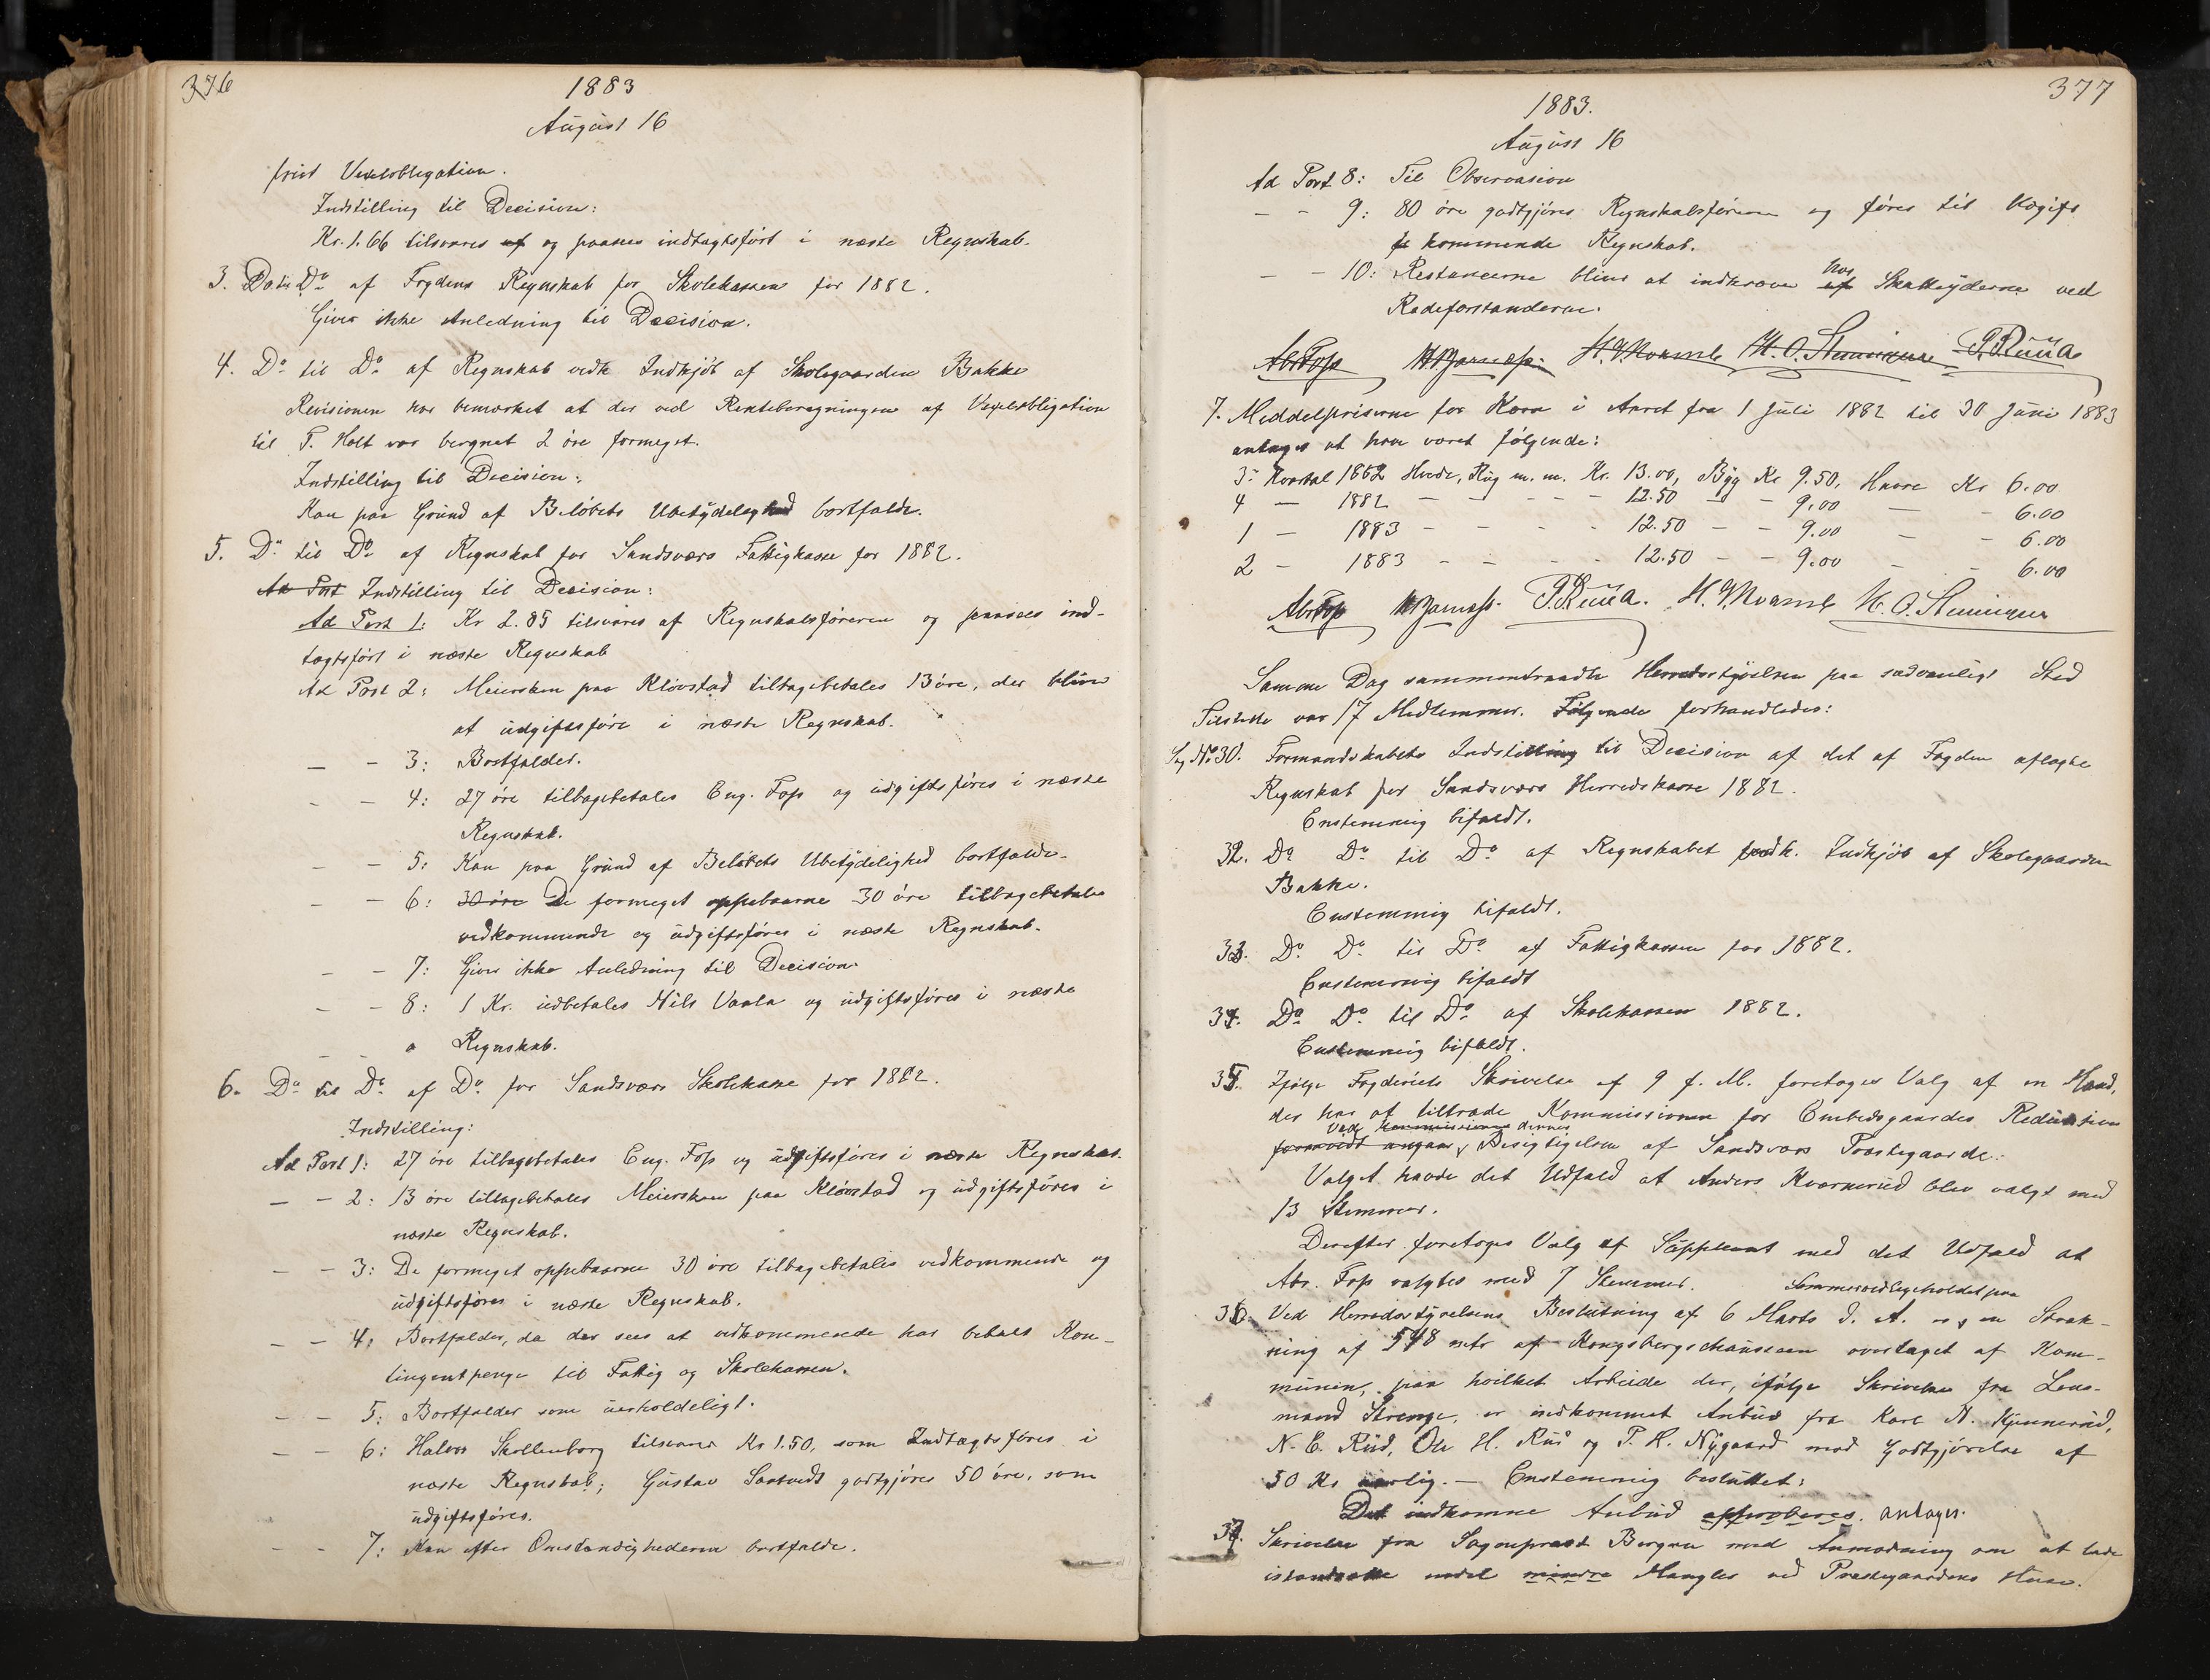 376
1883
August 16
frist Vexelobligation.
Indstilling til Decision:
Kr. 1.66 tilsvares af og paases indtægtsført i næste Regnskab.
3. Do til Do af Fogdens Regnskab for Skolekassen for 1882.
Giver ikke Anledning til Decision.
4. Do til Do af Regnskab vedk Indkjøb af Skolegaarden Bakke
Revisionen har bemærket at der ved Renteberegningen af Vexelobligation
til T. Holt var beregnet 2 øre formeget.
Indstilling til Decision:
Kan paa Grund af Beløbets Ubetydelighed bortfalde.
5. Do til Do af Regnskab for Sandsværs Fattigkasse for 1882.
Ad Post Indstilling til Decision:
Ad Post 1: Kr 2.85 tilsvares af Regnskabsføreren og paasees ind-
tægtsført i næste Regnskab
Ad Post 2: Meiersken paa Kløvstad tilbagebetales 13 øre, der bliver
at udgiftsføre i næste Regnskab.
— - 3: Bortfalder.
- — 4: 27 øre tilbagebetales Eug. Foss og udgiftsføres i næste
Regnskab.
- — 5: Kan paa Grund af Beløbets Ubetydelighed bortfalde.
- — 6: 30 øre De formeget oppebaarne 30 øre tilbagebetales
vedkommende og udgiftsføres i næste Regnskab.
- — 7: Giver ikke Anledning til Decision.
- — 8: 1 Kr. udbetales Nils Vaala og udgiftsføres i næste
Regnskab.
6. Do til Do af Do for Sandsværs Skolekasse for 1882.
Indstilling:
Ad Post 1: 27 øre tilbagebetales Eug. Foss og udgiftsføres i næste Regnskab.
— — 2: 13 øre tilbagebetales Meiersken paa Kløvstad og udgiftsføres i
næste Regnskab.
— — 3: De formeget oppebaarne 30 øre tilbagebetales vedkommende og
udgiftsføres i næste Regnskab.
— — 4: Bortfalder, da der sees at vedkommende har betalt Kon-
tingentpenge til Fattig og Skolekassen.
— — 5: Bortfalder som uerholdeligt.
— — 6: Halvor Skollenborg tilsvarer Kr 1.50, som Indtægtsføres i
næste Regnskab; Gustav godtgjøres 50 øre, som
udgiftsføres.
- - 7: Kan efter Omstændighederne bortfalde.
377
1883.
August 16
Ad Post 8: Til Observasion
— - 9: 80 øre godtgjøres Regnskabsføreren og føres til Udgift
kommende Regnskab.
— - 10: Restancerne bliver at indkræve af hos Skatteyderne ved
Rodeforstanderne.
Abr Foss H. O. Stenmoen P. Ruud
7. Middelpriserne for Korn i Aaret fra 1 Juli 1882 til 30 Juni 1883
antages at have været følgende:
3. Kvartal 1882 Hvede, Rug m. m. Kr. 13.00, Byg Kr 9.50, Havre Kr 6.00
4 — 1882 - - - - 12.50 - - 9.00 - - 6.00
1 — 1883 - - - - 12.50 - - 9.00 - - 6.00
2 - 1883 - - - - 12.50 - - 9.00 - - 6.00
Abr Foss P. Ruud.
Samme Dag sammentraadte Herredsstyrelsen paa sædvanligt Sted
Tilstede var 17 Medlemmer. Følgende forhandledes:
Sag No 30. Formandskabets Indstilling til Decision af det af Fogden aflagte
Regnskab for Sandsværs Herredskasse 1882.
Enstemmig bifaldt.
32. Do Do til Do af Regnskabet vedk. Indkjøb af Skolegaarden
Bakke.
Enstemmig bifaldt.
33. Do Do til Do af Fattigkassen for 1882.
Enstemmig bifaldt
34. Do Do til Do af Skolekassen 1882.
Enstemmig bifaldt.
35. Ifølge Fogderiets Skrivelse af 9 f. M. foretages Valg af en Mand,
der har at tiltræde Kommissionen for Embedsgaardes Reduktion
ved kommissionens dennes
forsaavidt angaar Besigtigelsen af Sandsværs Præstegaarde.
Valget havde det Udfald at Anders Kværnerud blev valgt med
13 Stemmer.
Derefter foretoges Valg af Suppleant med det Udfald at
Abr. Foss valgtes med 7 Stemmer.
Sommervedligeholdet paa
36. Ved Herredsstyrelsens Beslutning af 6 Marts d. A. er en Stræk-
ning af 548 mtr af Kongsbergschausseen overtaget af Kom-
munen, paa hvilket Arbeide der, ifølge Skrivelse fra Lens-
mand Strenge, er indkommet Anbud fra Karl N.
N. C. Rud, Ole H. Rud og P. H. Nygaard mod Godtgjørelse af
50 Kr aarlig. — Enstemmig besluttet:
Det indkomne Anbud approberes. antages.
37. Skrivelse fra Sogneprest Borgen med Anmodning om at lade
istandsætte endel mindre Mangler ved Præstegaardens Huse.